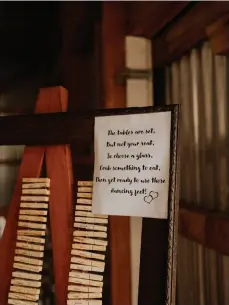 The tables are set,
But not your seat,
So choose a glass,
Grab something to eat,
Then get ready to use those
dancing feet!